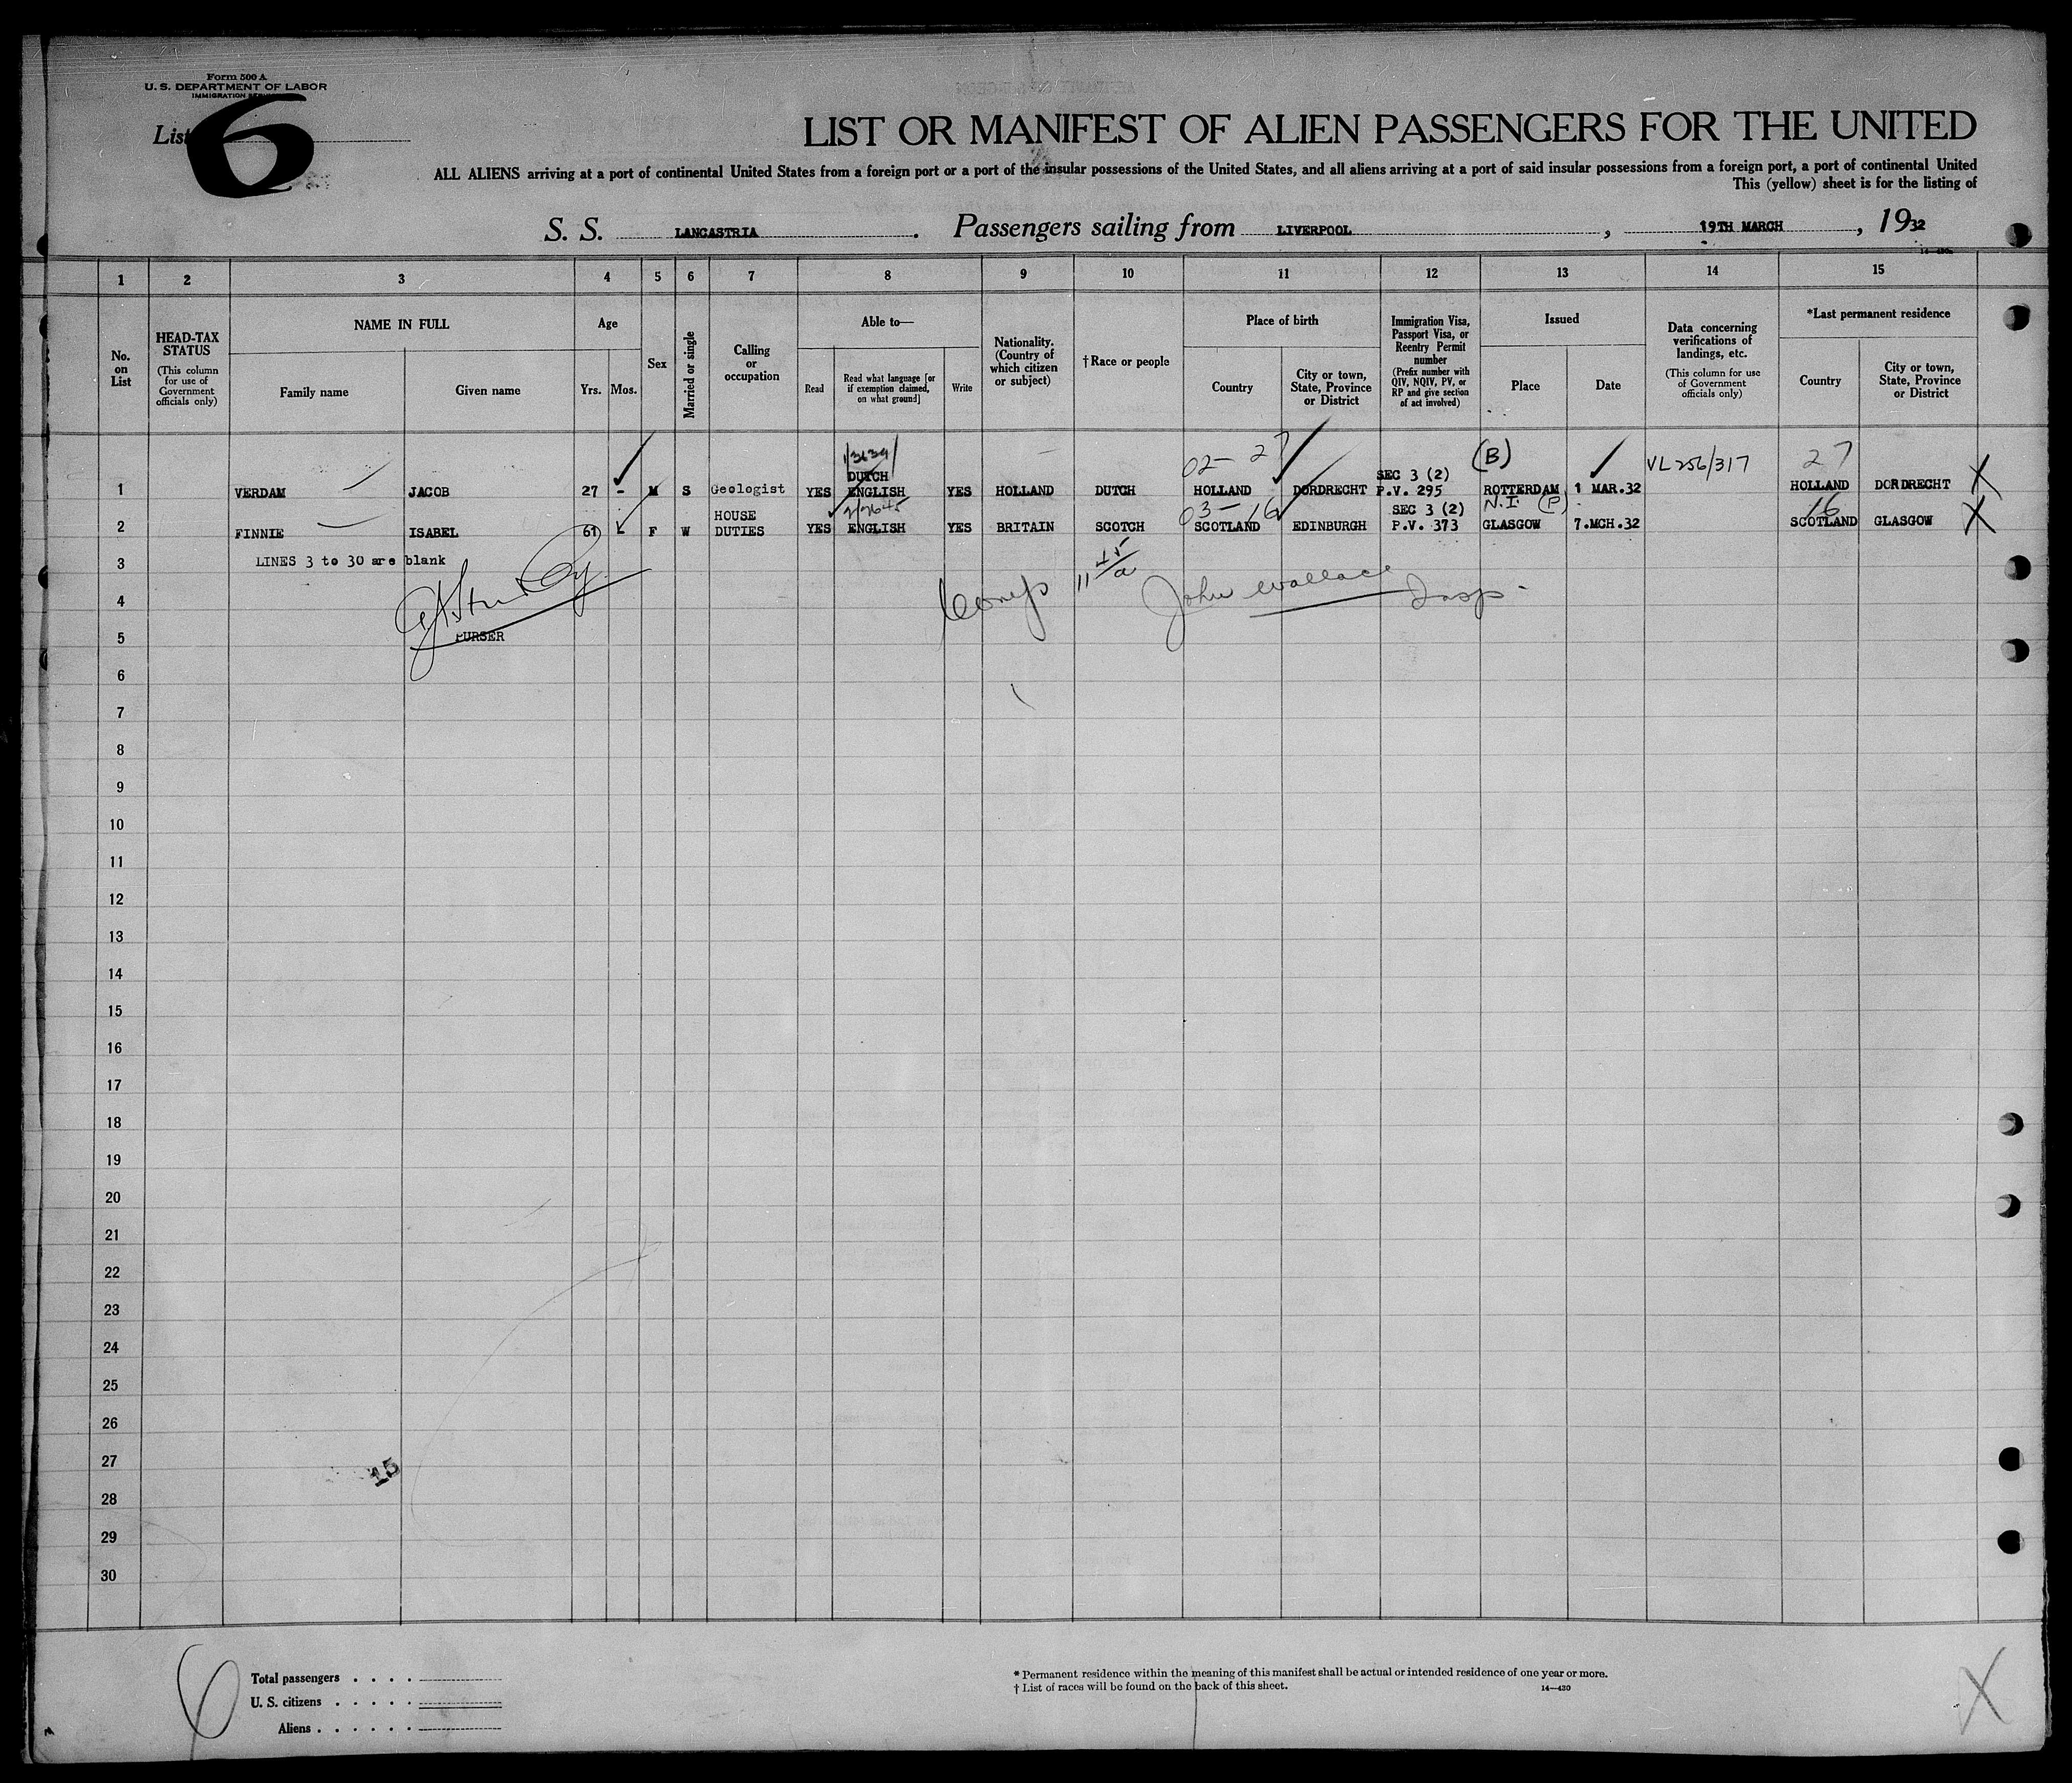 Form 500 A
U. S. DEPARTMENT OF LABOR
IMMIGRATION
List 6
LIST OR MANIFEST OF ALIEN PASSENGERS FOR THE UNITED
ALL ALIENS arriving at a port of continental United States from a foreign port or a port of the insular possessions of the United States, and all aliens arriving at a port of said insular possessions from a foreign port, a port of continental United
This (yellow) sheet is for the listing of
S. S. LANCASTRIA. Passengers sailing from LIVERPOOL, 19TH MARCH, 1932
1 2 3 4 5 6 7 8 9 10 11 12 13 14 15
No. on List
HEAD-TAX STATUS
(This column for use of Government officials only)
NAME IN FULL
Family name
Given name
Age
Yrs. Mos.
Sex
Married or single
Calling or occupation
Able to—
Read
Read what language [or if exemption claimed, on what ground]
Write
Nationality. (Country of which citizen or subject)
†Race or people
Place of birth
Country
City or town, State, Province or District
Immigration Visa, Passport Visa, or Reentry Permit number
(Prefix number with QIV, NQIV, PV, or RP and give section of act involved)
Issued
Place
Date
Data concerning verifications of landings, etc.
(This column for use of Government officials only)
*Last permanent residence
Country
City or town, State, Province or District
02- 27 (B) VL 256/317 27
DUTCH SEC 3 (2)
1 VERDAM JACOB 27 - M S Geologist YES ENGLISH YES HOLLAND DUTCH HOLLAND DORDRECHT P.V. 295 ROTTERDAM 1 MAR.32 HOLLAND DORDRECHT X
03-16 SEC 3 (2) N.I. (P) 16
2 FINNIE ISABEL 61 F W HOUSE DUTIES YES ENGLISH YES BRITAIN SCOTCH SCOTLAND EDINBURGH P.V. 373 GLASGOW 7.MCH.32 SCOTLAND GLASGOW X
3 LINES 3 to 30 are blank
4 John Wallace Insp.
5 PURSER
6
7
8
9
10
11
12
13
14
15
16
17
18
19
20
21
22
23
24
25
26
27
15
28
29
30
Total passengers . . . .
U. S. citizens . . . . .
Aliens . . . . . .
* Permanent residence within the meaning of this manifest shall be actual or intended residence of one year or more.
† List of races will be found on the back of this sheet.
14—430
X